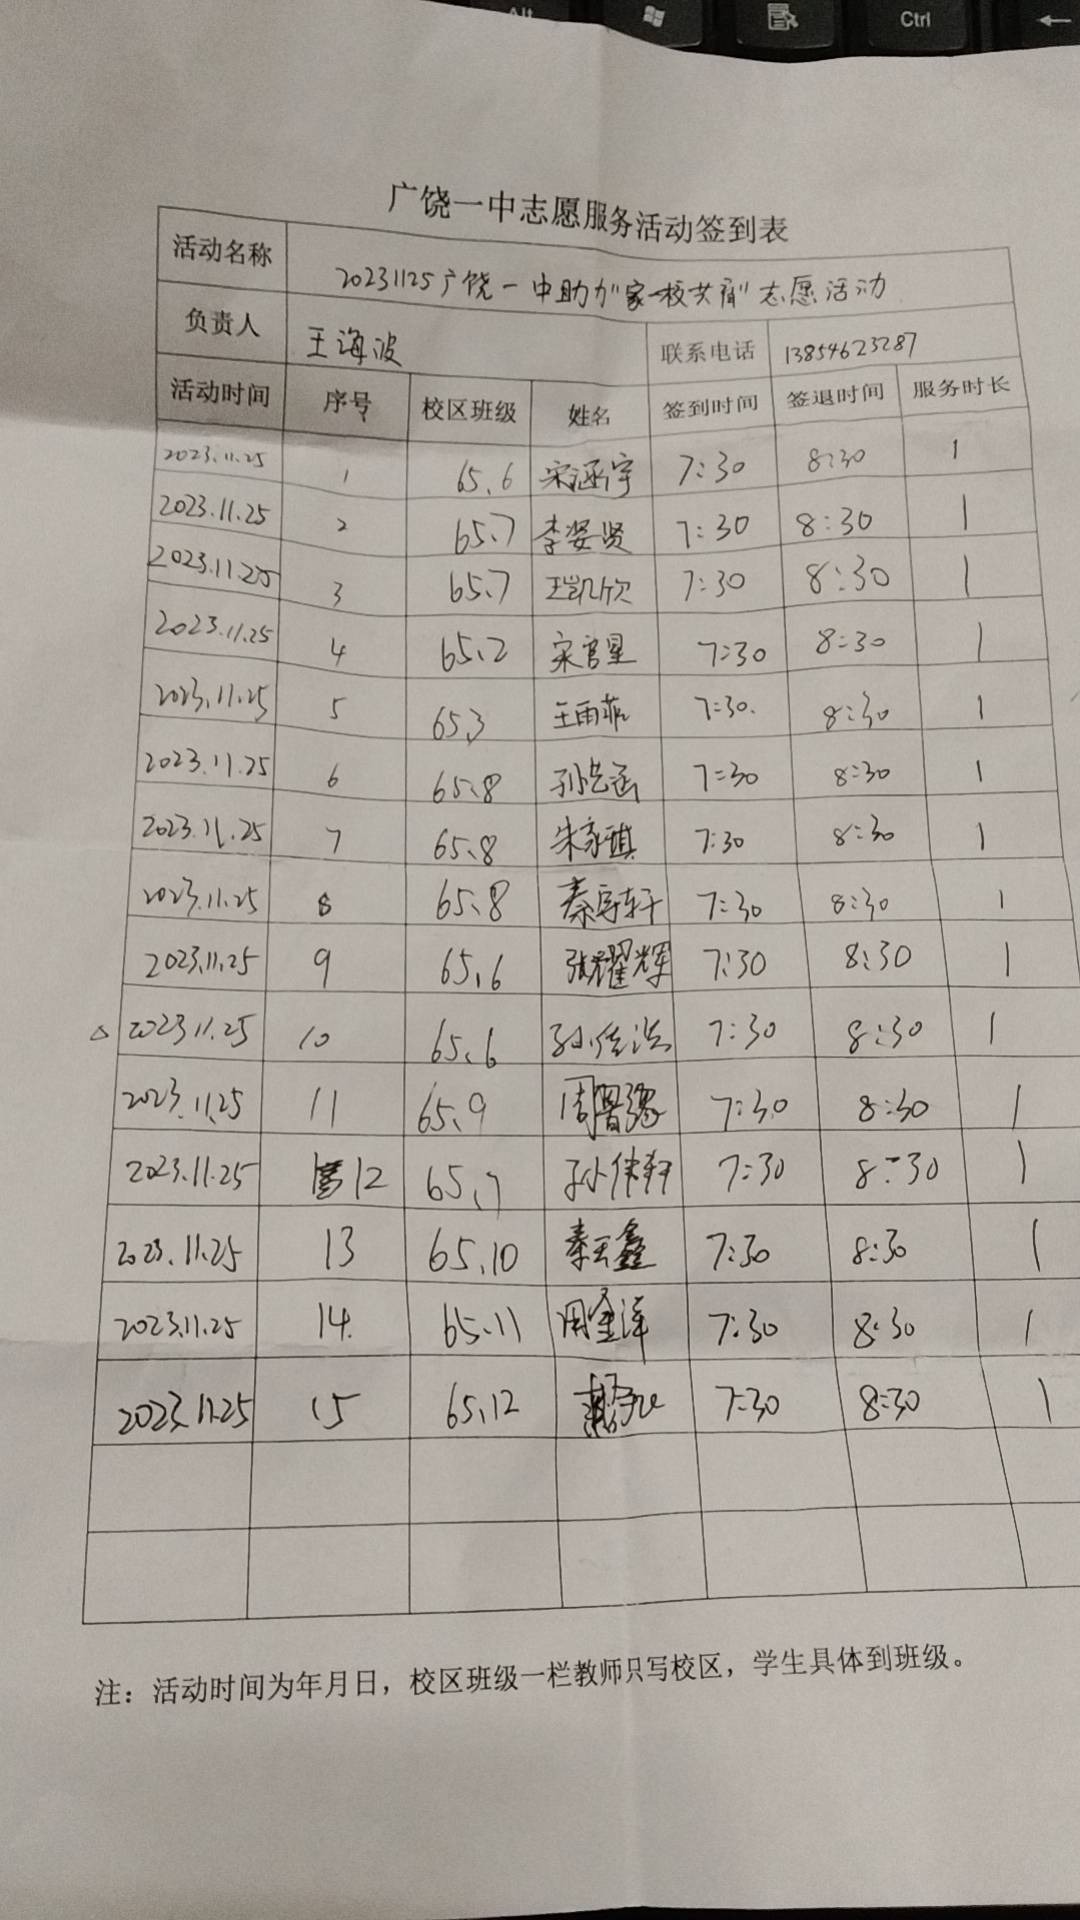 Alt
Ctrl
广饶一中志愿服务活动签到表
活动名称 20231125广饶一中助力"家校共育"志愿活动
负责人 王海波 联系电话 13854623287
活动时间 序号 校区班级 姓名 签到时间 签退时间 服务时长
2023.11.25 1 65.6 宋涵宇 7:30 8:30 1
2023.11.25 2 65.7 李姿贤 7:30 8:30 1
2023.11.25 3 65.7 王凯欣 7:30 8:30 1
2023.11.25 4 65.2 宋官星 7:30 8:30 1
2023.11.25 5 65.3 王雨菲 7:30. 8:30 1
2023.11.25 6 65.8 7:30 8:30 1
2023.11.25 7 65.8 朱家琪 7:30 8:30 1
2023.11.25 8 65.8 秦宇轩 7:30 8:30 1
2023.11.25 9 65.6 张耀辉 7:30 8:30 1
△ 2023.11.25 10 65.6 7:30 8:30 1
2023.11.25 11 65.9 7:30 8:30 1
2023.11.25 12 65.7 孙伟翔 7:30 8:30 1
2023.11.25 13 65.10 秦天鑫 7:30 8:30 1
2023.11.25 14. 65.11 周金泽 7:30 8:30 1
2023.11.25 15 65.12 7:30 8:30 1
注：活动时间为年月日，校区班级一栏教师只写校区，学生具体到班级。